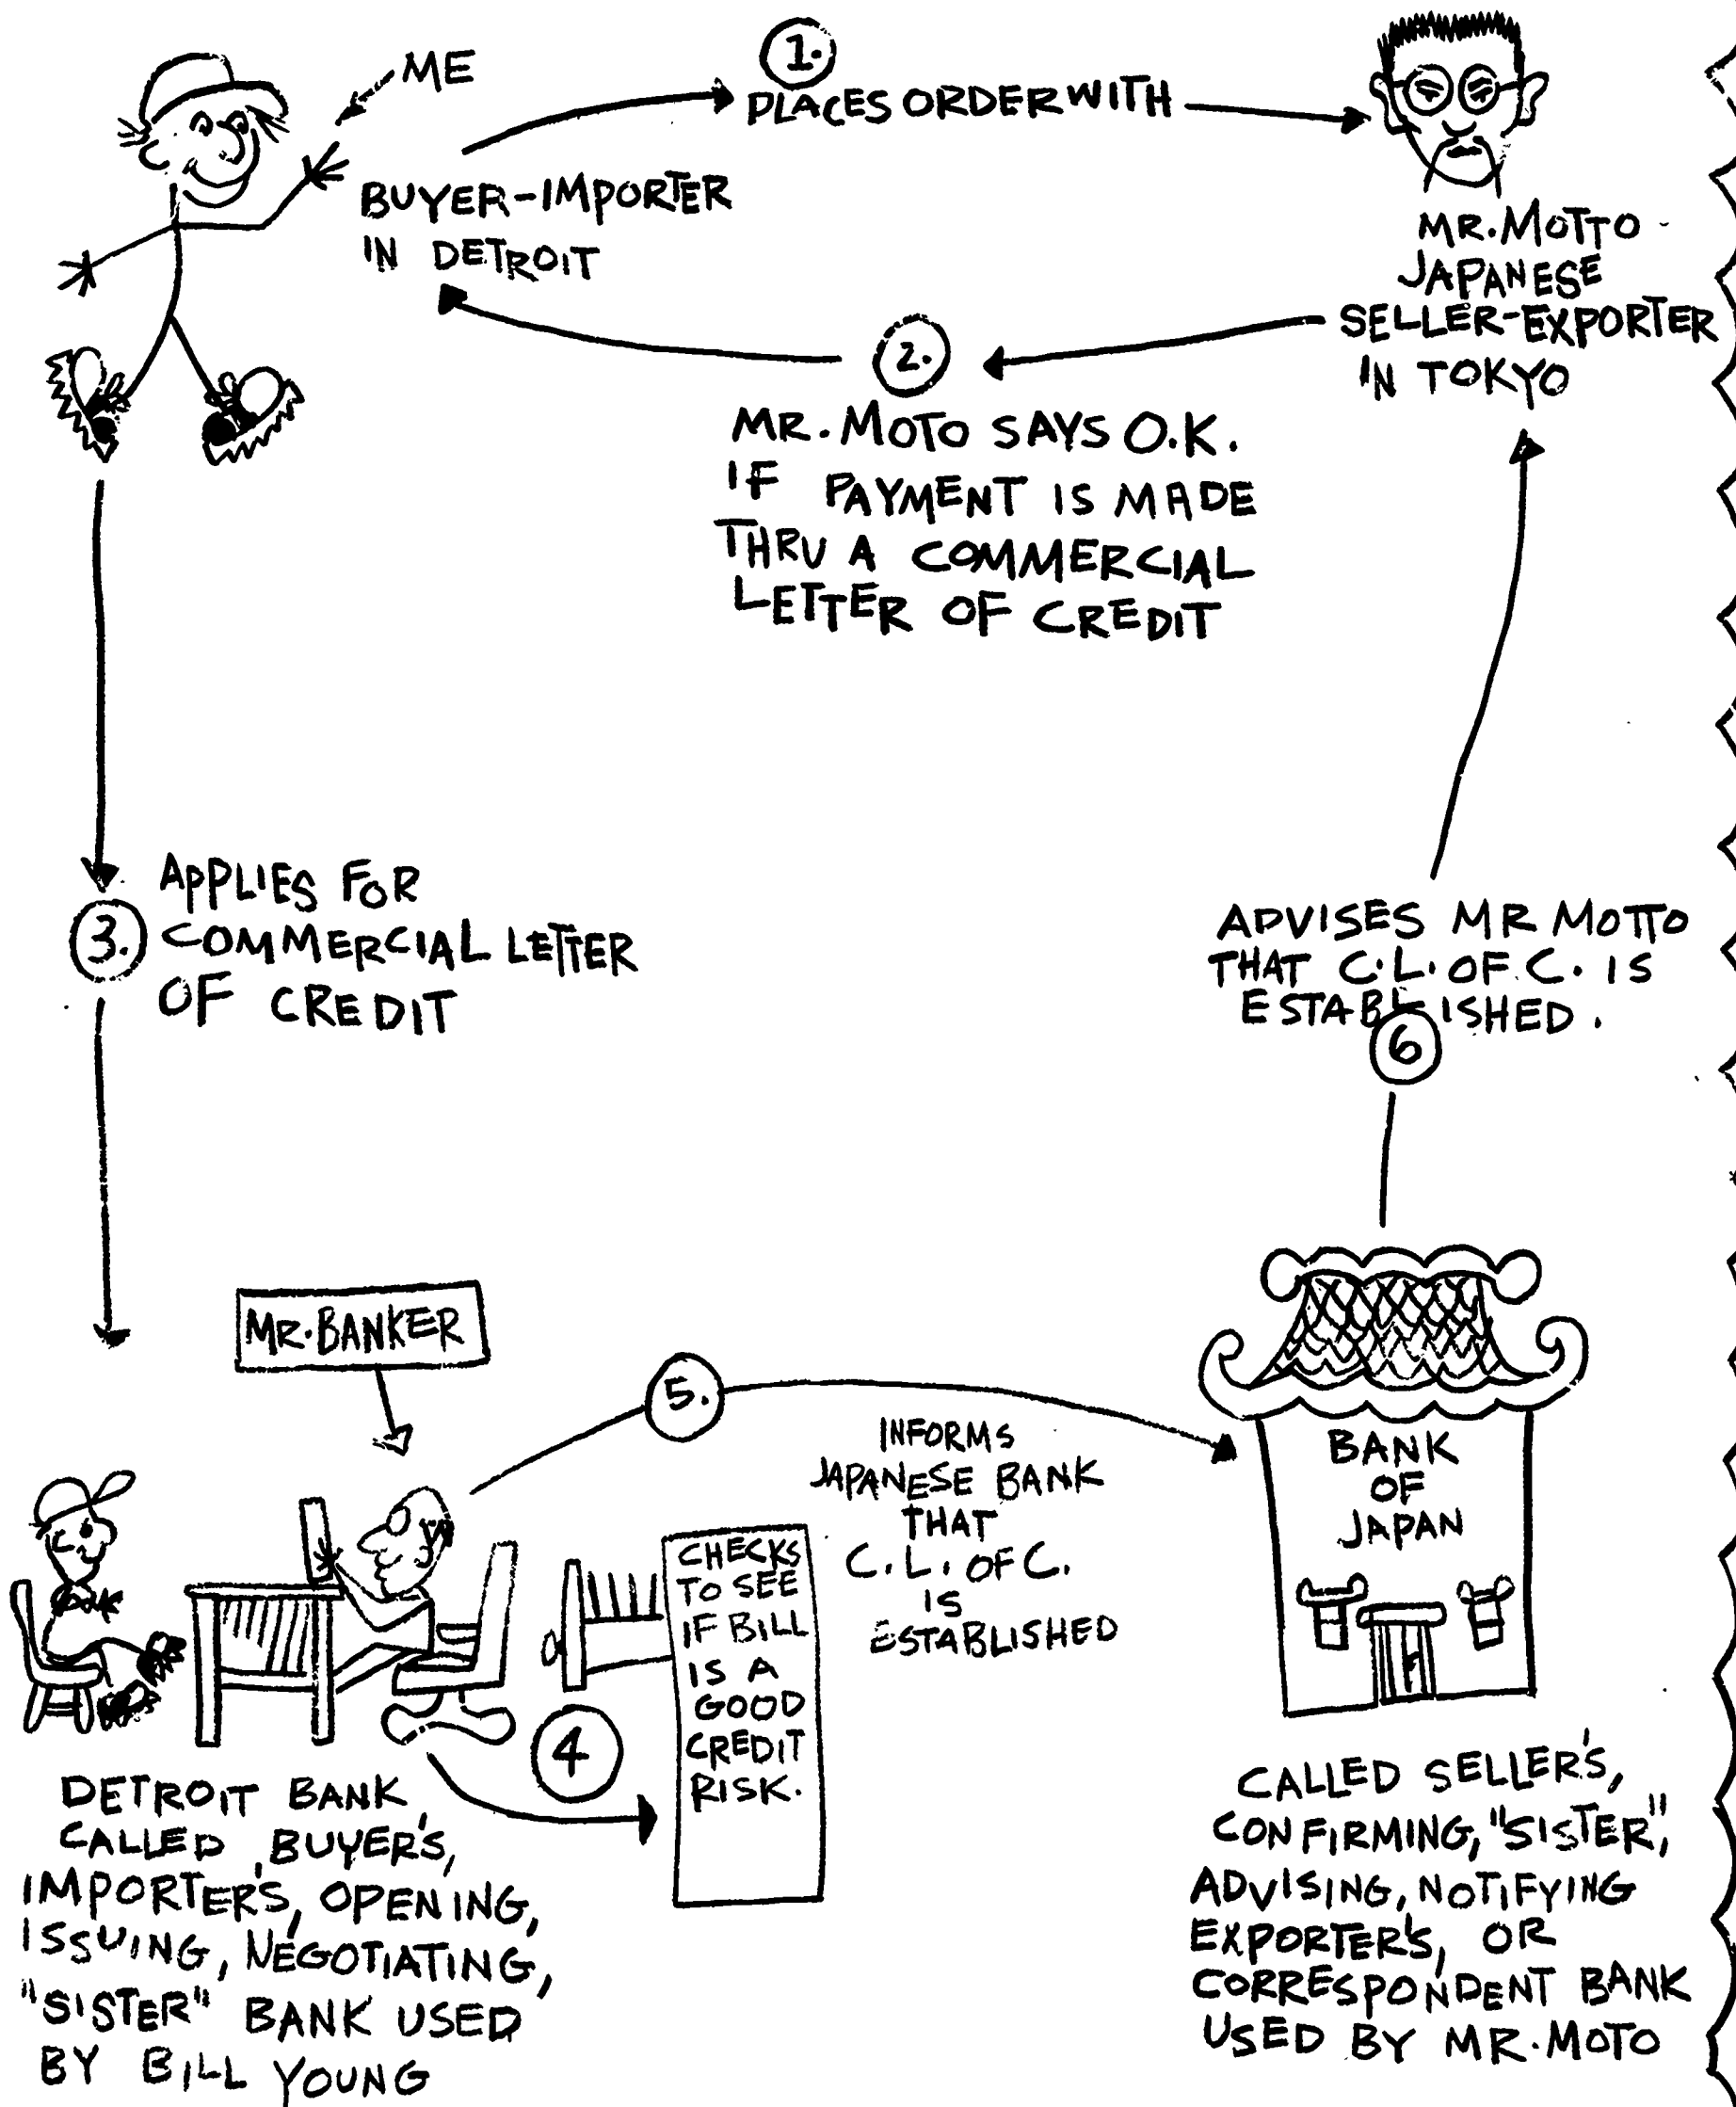 ME
1.
PLACES ORDER WITH
BUYER-IMPORTER
IN DETROIT
MR. MOTTO
JAPANESE
SELLER-EXPORTER
IN TOKYO
2.
MR. MOTO SAYS O.K.
IF PAYMENT IS MADE
THRU A COMMERCIAL
LETTER OF CREDIT
3.
APPLIES FOR
COMMERCIAL LETTER
OF CREDIT
ADVISES MR MOTTO
THAT C.L. OF C. IS
ESTABLISHED.
6
MR. BANKER
5.
INFORMS
JAPANESE BANK
THAT
C.L. OF C.
IS
ESTABLISHED
BANK
OF
JAPAN
CHECKS
TO SEE
IF BILL
IS A
GOOD
CREDIT
RISK.
4
DETROIT BANK
CALLED BUYER'S,
IMPORTER'S, OPENING,
ISSUING, NEGOTIATING,
"SISTER" BANK USED
BY BILL YOUNG
CALLED SELLER'S,
CONFIRMING, "SISTER",
ADVISING, NOTIFYING
EXPORTER'S, OR
CORRESPONDENT BANK
USED BY MR. MOTO